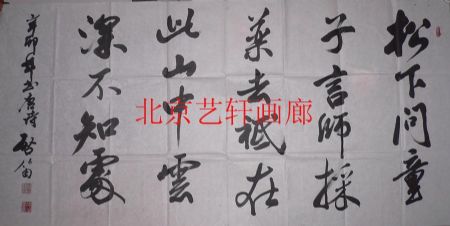 松下问童
子言師採
薬去祗在
此山中雲
深不知處
辛卯年书唐诗
北京艺轩画廊